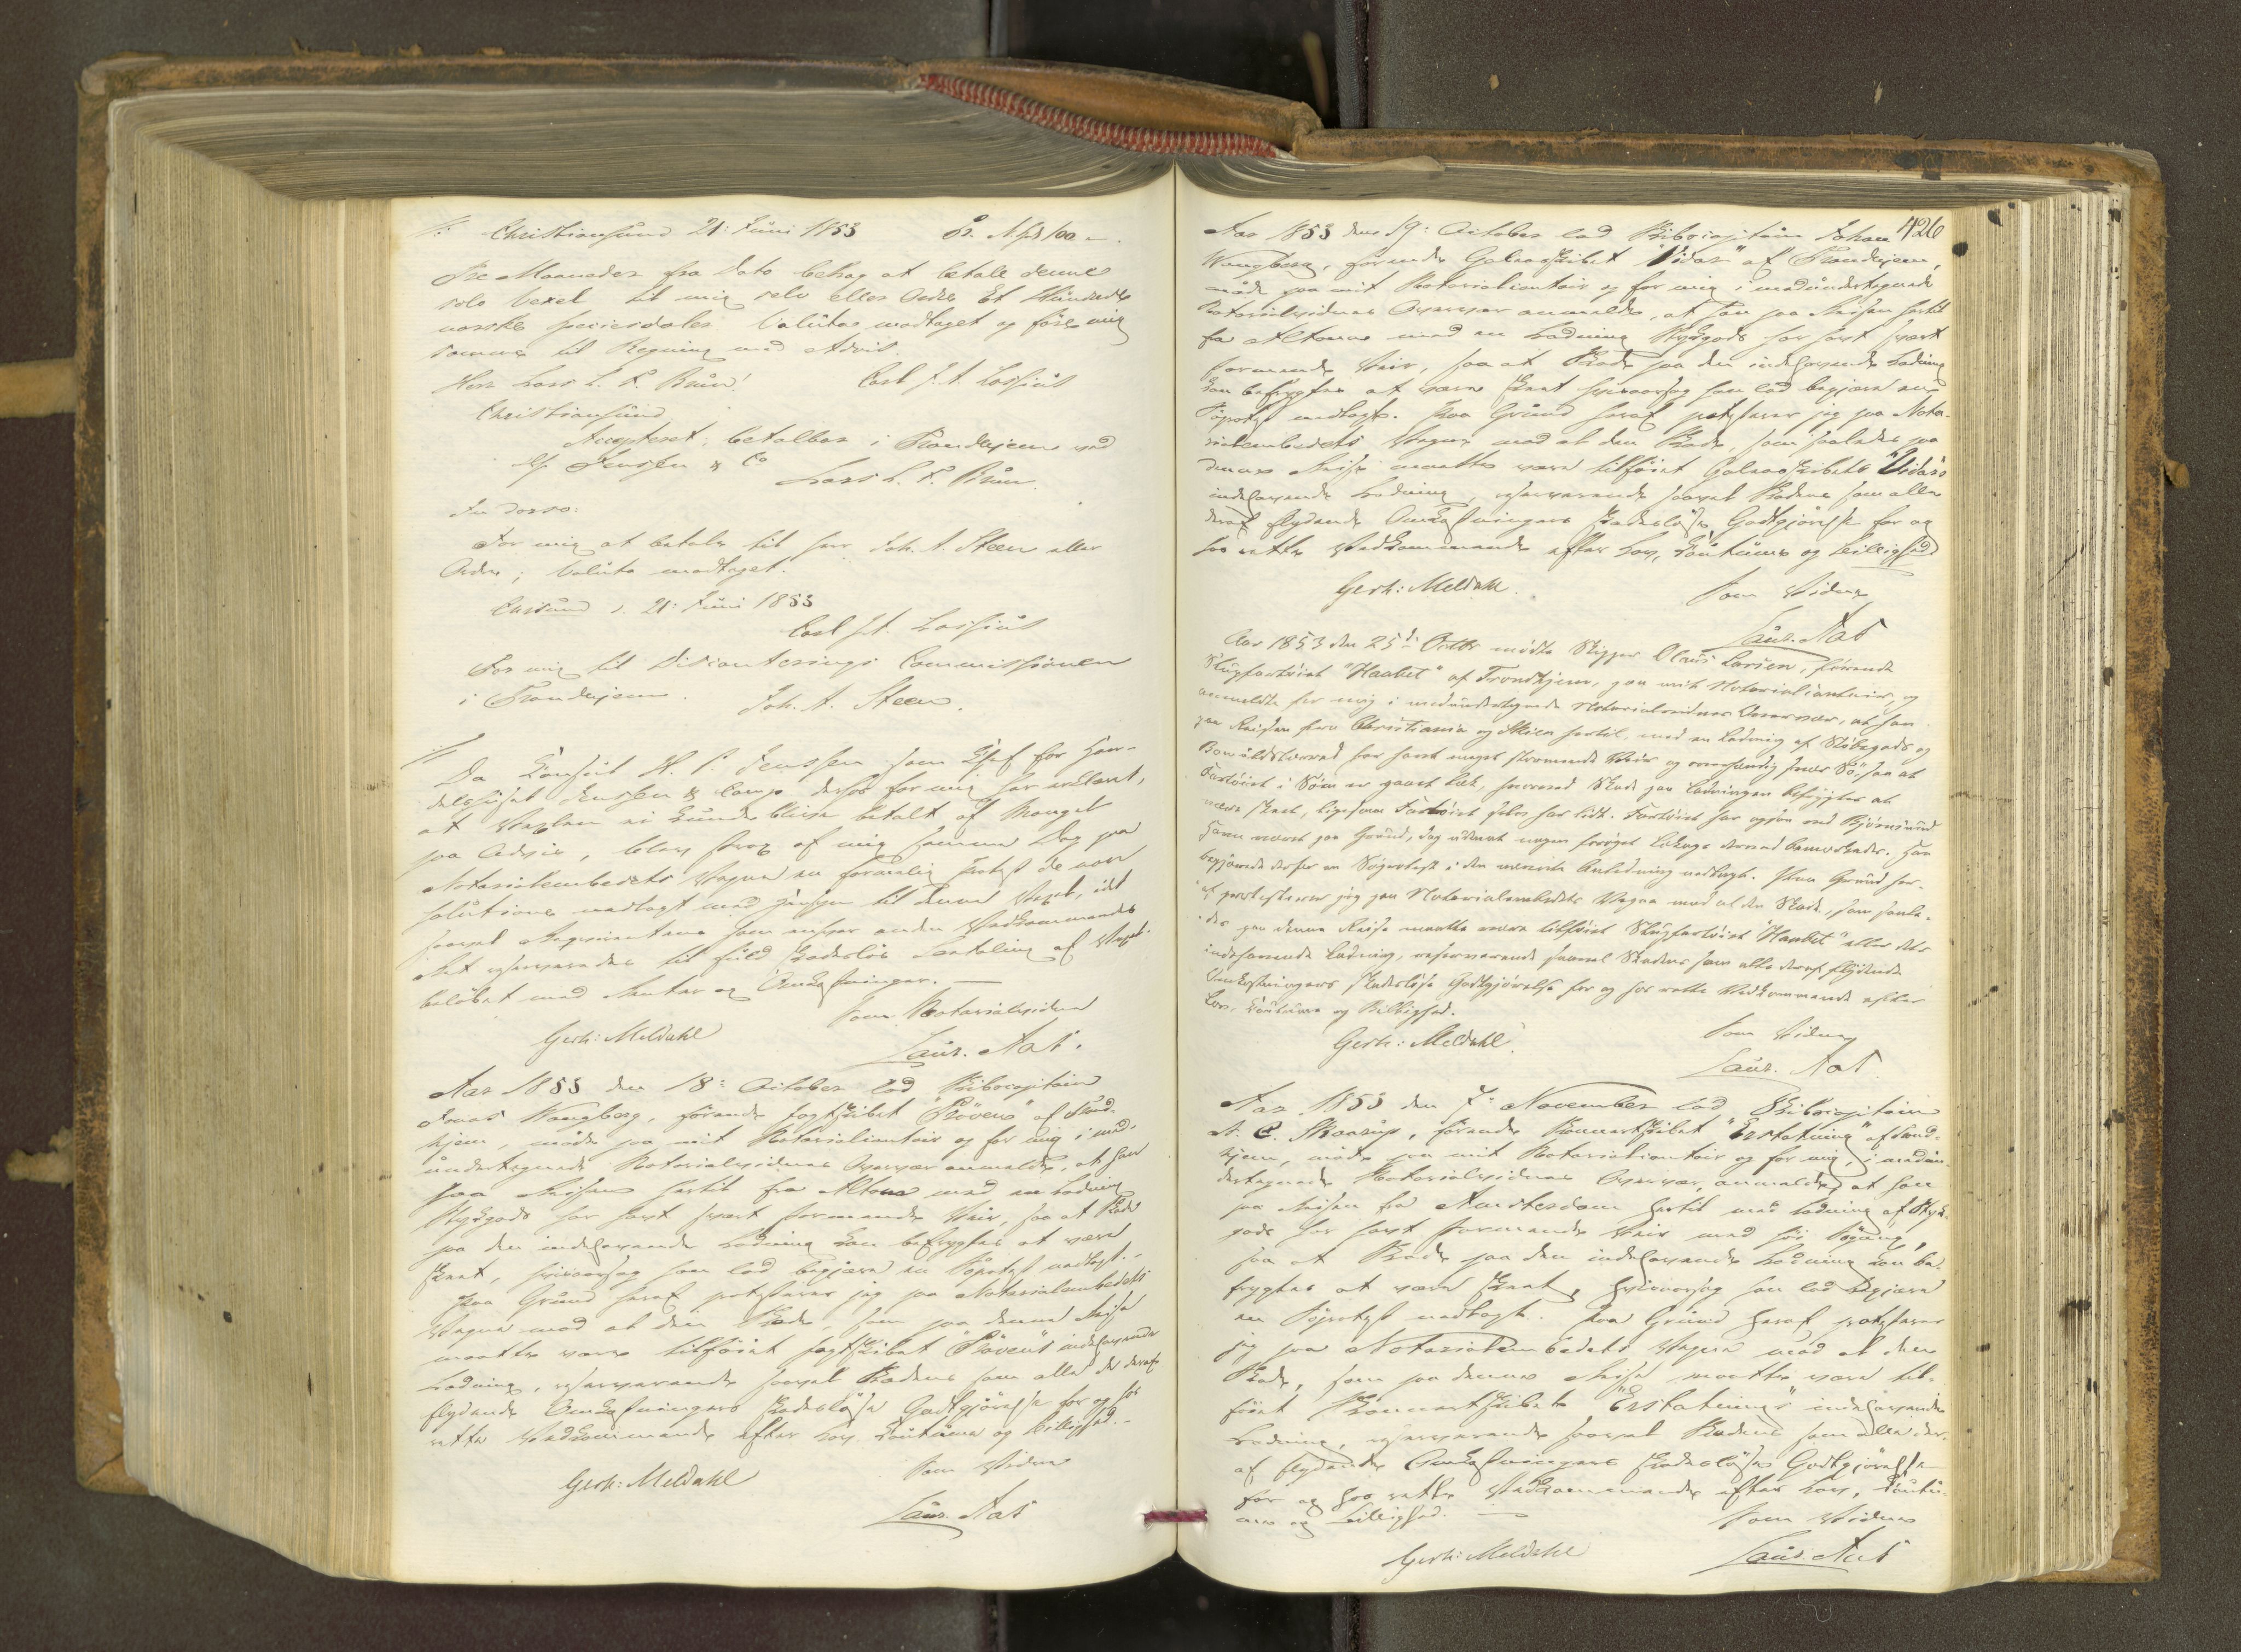 Christiansund 21: Juni 1853 Pr. Spd 100 –.
Tre Maaneder fra Dato behag at betale denne
solo Vexel til mig selv eller Ordre Et Hundrede
norske Speciesdaler. Valuta modtaget og föres
samme til Regning med Advis.
Herr Lars L. P. Brun! Carl J. A. Lossius
Christiansund
Accepteret, betalbar i Trondhjem ved
Hr Jenssen & Co
Lars L. P. Brun.
In dorso:
For mig at betale til Herr Joh. A. Steen eller
Ordre; Valuta modtaget.
Chrsund d. 21: Juni 1853
Carl J. A. Lossius
For mig til Disconterings Commissionen
i Trondhjem.
Joh. A. Steen.
Da Consul H. P. Jenssen som Chef for Han-
delshuset Jenssen & Comp. derhos for mig har erklæret,
at Vexlen ei kunde blive betalt af Mangel
paa Advis, blev strax af mig samme Dag paa
Notarialembedets Vegne en formelig Protest de non
solutione modtaget med Hensyn til denne Vexel, idet
saavel Requirentens som enhver anden Vedkommendes
Ret reserveredes til fuld skadeslös Betaling af Vexel-
belöbet med Renter og Omkostninger. —
Som Notarialvidne
Gerh: Meldahl
Laur. Aas.
Aar 1853 den 18: October lod Skibscapitain
Jonas Wangberg, förende Jagtskibet "Pröven" af Trond-
hjem, möde paa mit Notarialcontoir og for mig i med-
undertegnede Notarialvidnes Overvær anmelde, at han
paa Reisen hertil fra Altona med en Ladning
Stykgods har havt svært stormende Veir, saa at Skade
paa den indehavende Ladning kan befrygtes at være
skeet, hvisaarsag han lod begjære en Söprotest modtaget. –
Paa Grund heraf protesterer jeg paa Notarialembedets
Vegne mod al den Skade, som paa denne Reise
maatte være tilföiet Jagtskibet "Pröven"s indehavende
Ladning, reserverende saavel Skadens som alle de deraf
flydende Omkostningers skadeslöse Godtgjörelse for og hos
rette Vedkommende efter Lov, Coutume og Billighed. –
Som Vidne
Gerh: Meldahl
Laur. Aas
426
Aar 1853 den 19: October lod Skibscapitain Johan
Wangberg, förende Galeasskibet "Vidar" af Trondhjem,
möde paa mit Notarialcontoir og for mig i medundertegnede
Notarialvidnes Overvær anmelde, at han paa Reisen hertil
fra Altona med en Ladning Stykgods har havt svært
stormende Veir, saa at Skade paa den indehavende Ladning
kan befrygtes at være skeet hvisaarsag han lod begjære en
Söprotest modtaget. Paa Grund heraf protesterer jeg paa Nota-
rialembedets Vegne mod al den Skade, som saaledes paa
denne Reise maatte være tilföiet Galeasskibets "Vidar"s
indehavende Ladning, reserverende saavel Skadens som alle
deraf flydende Omkostningers skadeslöse Godtgjörelse for og
hos rette Vedkommende efter Lov, Coutume og Billighed
Gerh: Meldahl. Som Vidne
Laur. Aas
Aar 1853 den 25de Octbr mödte Skipper Olaus Larsen, förende
Slupfartöiet "Haabet" af Trondhjem, paa mit Notarialcontoir og
anmeldte for mig i medundertegnede Notarialvidnes Overvær, at han
paa Reisen fra Christiania og Skien hertil, med en Ladning af Stöbegods og
har havt meget stormende Veir og svær Sö, saa at
Fartöiet i Söen er gaaet læk, hvorved Skade paa Ladningen befrygtes at
være skeet, ligesom Fartöiet selv har lidt. Fartöiet har ogsaa ved Björnsund
været paa Grund, dog uden at nogen foröget Lækage derved bemærkedes. Han
begjærede derfor en Söprotest i den nævnte Anledning modtaget. Paa Grund her-
af protesterer jeg paa Notarialembedets Vegne mod al den Skade, som saale-
des paa denne Reise maatte være tilföiet Slupfartöiet "Haabet" eller dets
indehavende Ladning, reserverende saavel Skadens som alle deraf flydende
Omkostningers skadeslöse Godtgjörelse for og hos rette Vedkommende efter
Lov, Coutume og Billighed.
Som Vidne
Gerh: Meldahl.
Laur. Aas
Aar 1853 den 7: November lod Skibscapitain
A. C. Skaarup, förende Skonnertskibet "Erstatning" af Trond-
hjem, möde paa mit Notarialcontoir og for mig, i medun-
dertegnede Notarialvidnes Overvær, anmelde, at han
paa Reisen fra Amsterdam hertil med Ladning af Styk-
gods har havt stormende Veir med höi Sögang,
saa at Skade paa den indehavende Ladning kan be-
frygtes at være skeet, hvisaarsag han lod begjære
en Söprotest modtaget. Paa Grund heraf protesterer
jeg paa Notarialembedets Vegne mod al den
Skade, som paa denne Reise maatte være til-
föiet Skonnertskibet "Erstatning"s indehavende
Ladning, reserverende saavel Skadens som alle der-
af flydende Omkostningers skadeslöse Godtgjörelse
for og hos rette Vedkommende efter Lov, Coutu-
me og Billighed. —
Som Vidne
Gerh: Meldahl
Laur. Aas